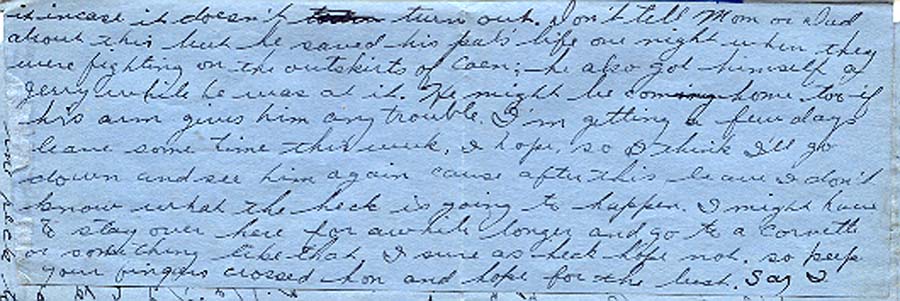 it incase it doesn't turn out. Don't tell Mom or Dad
about this but he saved his pal's life one night when they
were fighting on the outskirts of Caen; he also got himself a
Jerry while he was at it. He might be coming home too if
his arm gives him any trouble. I'm getting a few days
leave some time this week, I hope, so I think I'll go
down and see him again cause after this leave I don't
know what the heck is going to happen. I might have
to stay over here for awhile longer and go to a Corvette
or something like that, I sure as heck hope not. so keep
your fingers crossed hon and hope for the best. Say I